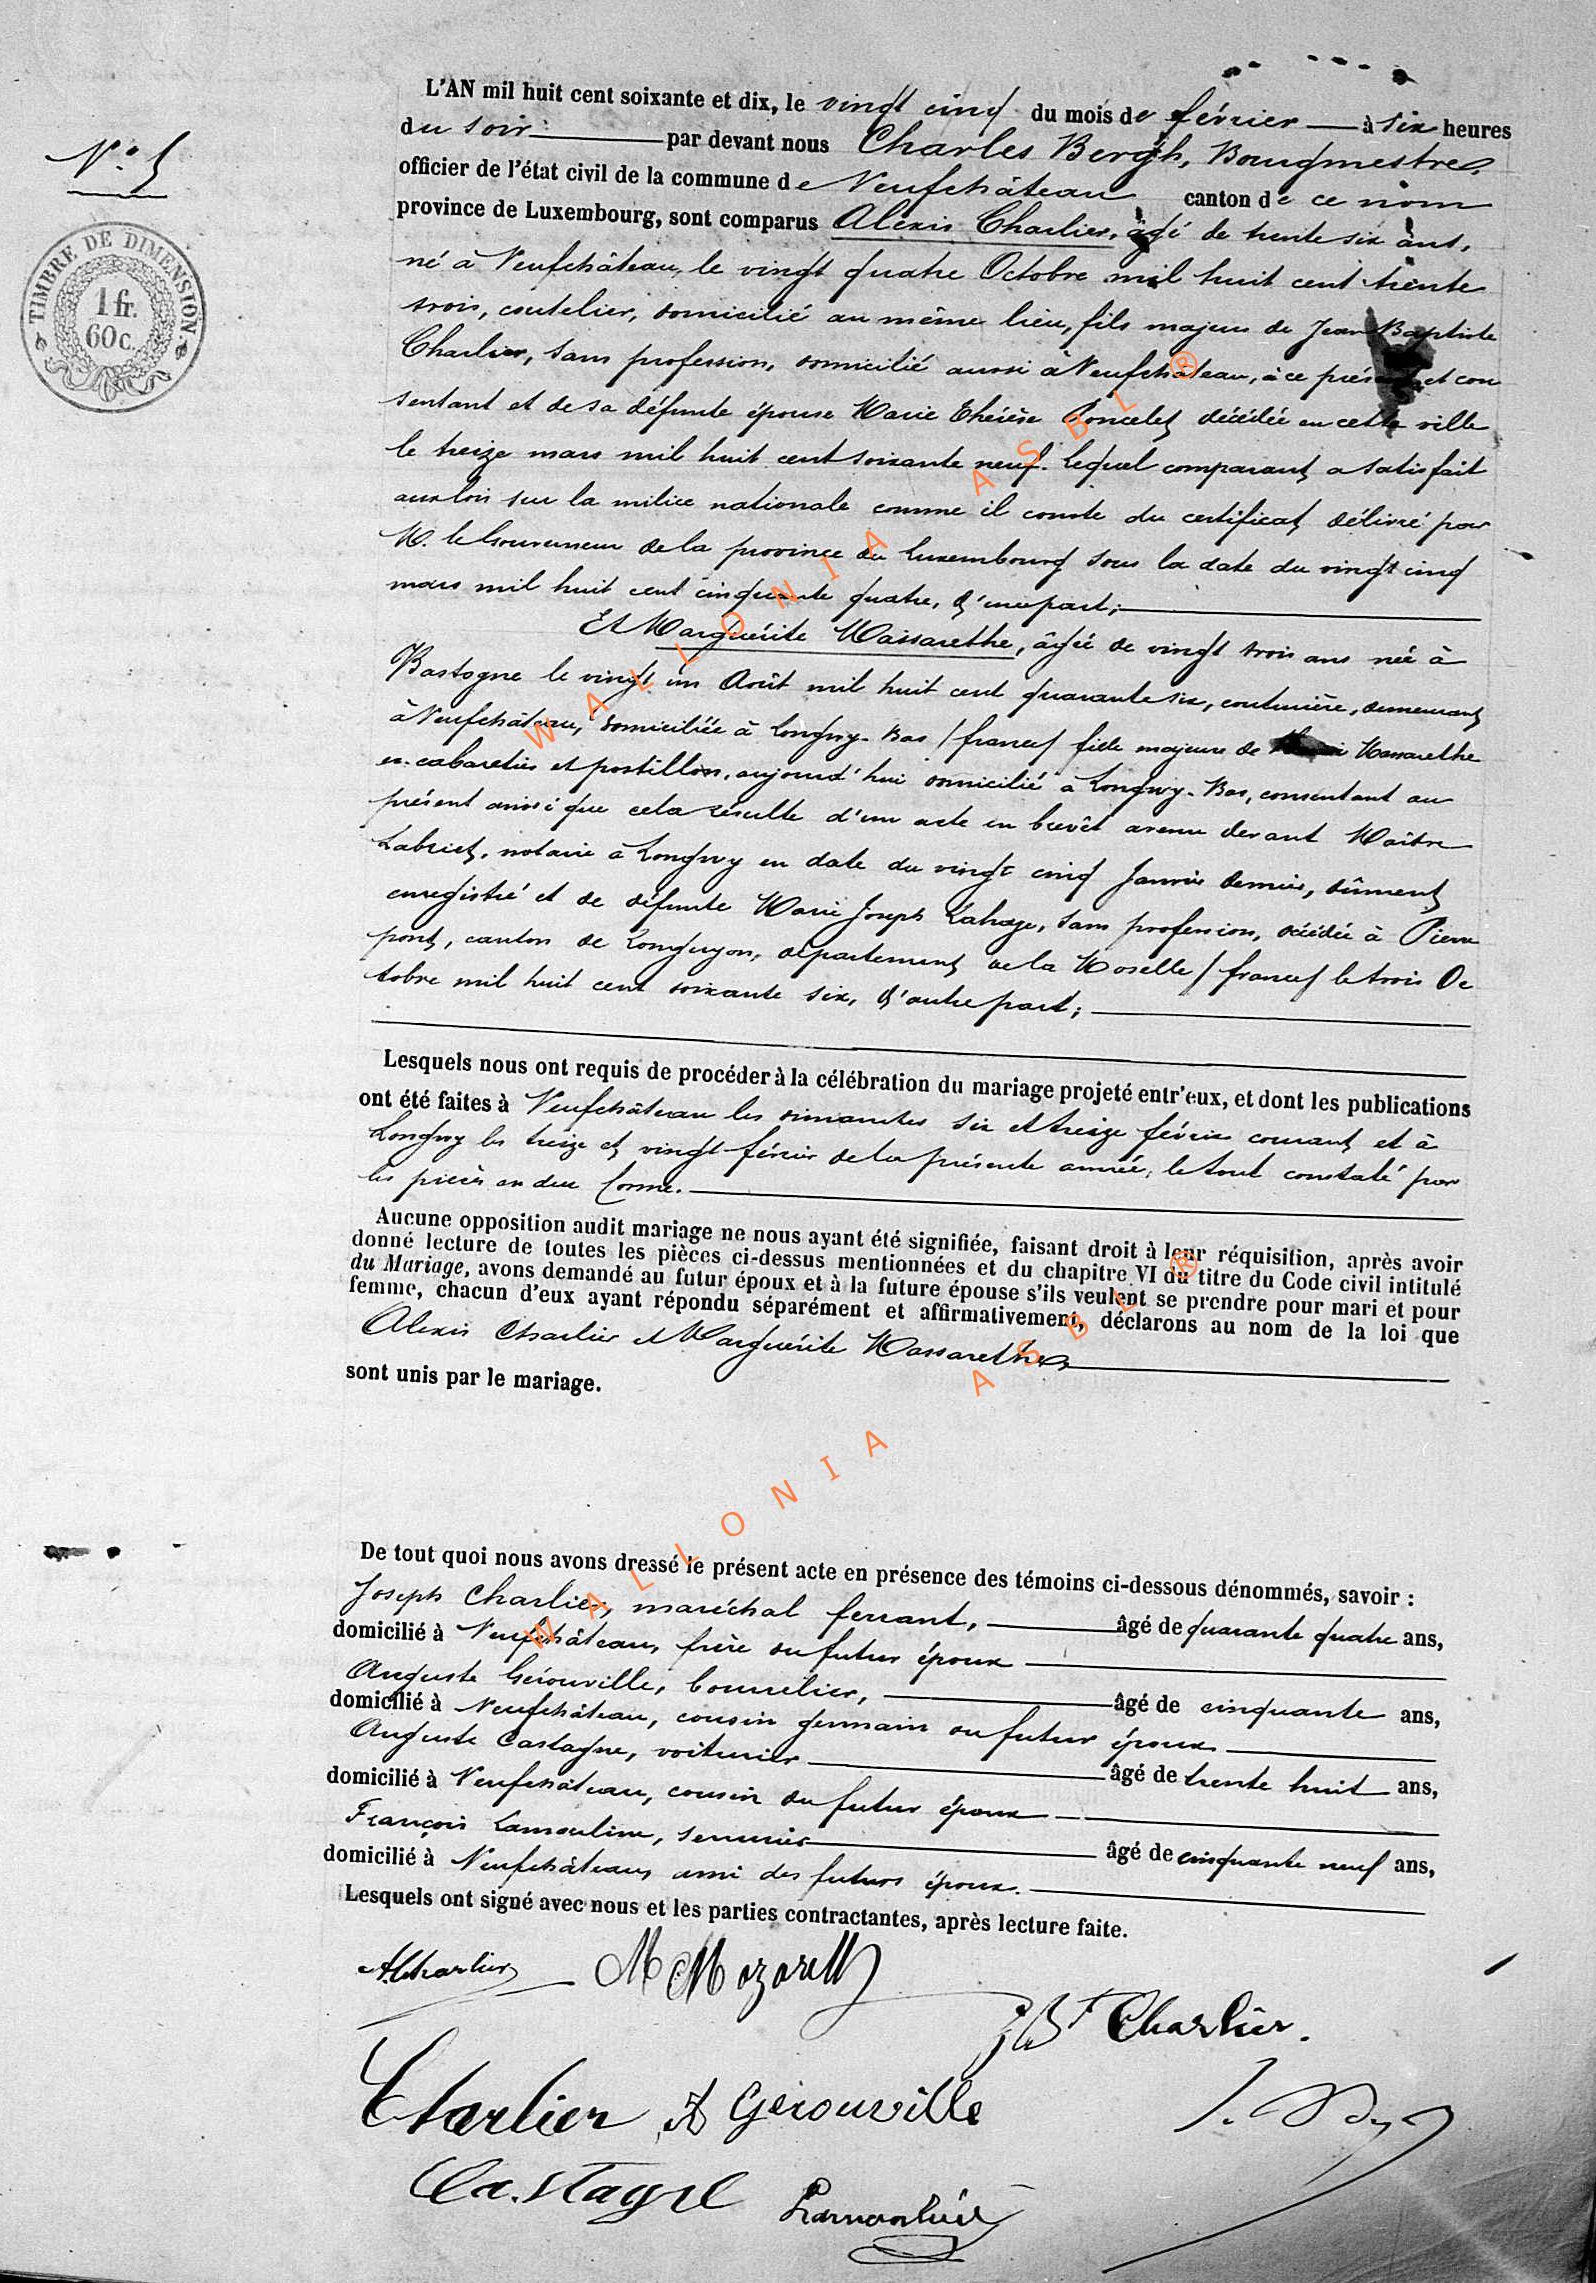 N° 5
TIMBRE DE DIMENSION.
1 fr.
60 c.
L'AN mil huit cent soixante et dix, le vingt cinq du mois de février à six heures
du soir par devant nous Charles Bergh, Bourgmestre,
officier de l'état civil de la commune de Neufchâteau canton de ce nom
province de Luxembourg, sont comparus Alexis Charlier, âgé de trente six ans,
né à Neufchâteau, le vingt quatre Octobre mil huit cent trente
trois, coutelier, domicilié au même lieu, fils majeur de Jean Baptiste
Charlier, sans profession, domicilié aussi à Neufchâteau, à ce présent et con
sentant et de sa défunte épouse Marie Thérèse Poncelet décédée en cette ville
le treize mars mil huit cent soixante neuf. Lequel comparant a satisfait
aux lois sur la milice nationale comme il conste du certificat délivré par
M. le Gouverneur de la province du Luxembourg sous la date du vingt cinq
mars mil huit cent cinquante quatre, d'une part;
Et Marguérite Massarethe, âgée de vingt trois ans née à
Bastogne le vingt un Août mil huit cent quarante six, couturière, demeurant
à Neufchâteau, domiciliée à Longwy-Bas (france) fille majeure de Massarethe
ex-cabaretier et postillon, aujourd'hui domicilié à Longwy-Bas, consentant au
présent ainsi que cela résulte d'un acte en brevêt avenu devant Maître
Labriet, notaire à Longwy en date du vingt cinq Janvier dernier, dûment
enregistré et de défunte Marie Joseph Lahaye, sans profession, décédée à Pierre
pont, canton de Longuyon, département de la Moselle (france) le trois Oc
tobre mil huit cent soixante six, d'autre part;
Lesquels nous ont requis de procéder à la célébration du mariage projeté entr'eux, et dont les publications
ont été faites à Neufchâteau les dimanches six et treize février courant et à
Longwy les treize et vingt février de la présente année, le tout constaté par
les pièces en due forme.
Aucune opposition audit mariage ne nous ayant été signifiée, faisant droit à leur réquisition, après avoir
donné lecture de toutes les pièces ci-dessus mentionnées et du chapitre VI du titre du Code civil intitulé
du Mariage, avons demandé au futur époux et à la future épouse s'ils veulent se prendre pour mari et pour
femme, chacun d'eux ayant répondu séparément et affirmativement, déclarons au nom de la loi que
Alexis Charlier et Marguérite Massarethe
sont unis par le mariage.
De tout quoi nous avons dressé le présent acte en présence des témoins ci-dessous dénommés, savoir :
Joseph Charlier, maréchal ferrant, âgé de quarante quatre ans,
domicilié à Neufchâteau, frère du futur époux
Auguste Gérouville, bourrelier, âgé de cinquante ans,
domicilié à Neufchâteau, cousin germain du futur époux
Auguste Castagne, voiturier âgé de trente huit ans,
domicilié à Neufchâteau, cousin du futur époux
François Lamouline, serrurier âgé de cinquante neuf ans,
domicilié à Neufchâteau, ami des futurs époux.
Lesquels ont signé avec nous et les parties contractantes, après lecture faite.
A. Charlier M Mozareth
J Bt Charlier.
Charlier A Gérouville
Castagne
WALLONIA ASBL ®
WALLONIA ASBL ®